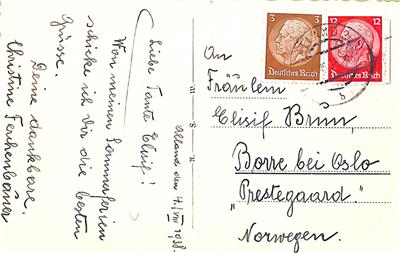 Alland den 4./VIII 1938.
Liebe Tante Elisif!
Von meinen Sommerferien
schicke ich Dir die besten
Grüsse.
Deine dankbare
Christine
3
3
Deutsches Reich
12
12
Deutsches Reich
An
Fräulein
Elisif Brun,
Borre bei Oslo
"Prestegaard."
Norwegen.